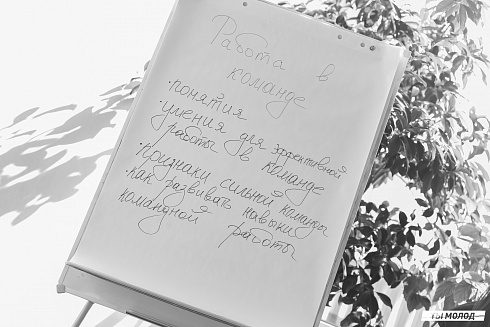 Работа в
команде
·понятия
·умения для эффективной
работы в команде
·признаки сильной команды
·как развивать навыки
командной работы
ТЫ МОЛОД